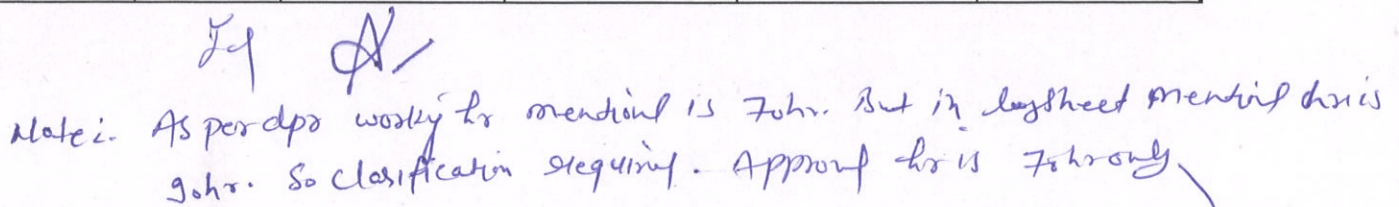 Note:- As per dpr working hr mentioned is 70hr. But in logsheet mentioned hr is
90hr. So clarification required. Approved hr is 70hr only